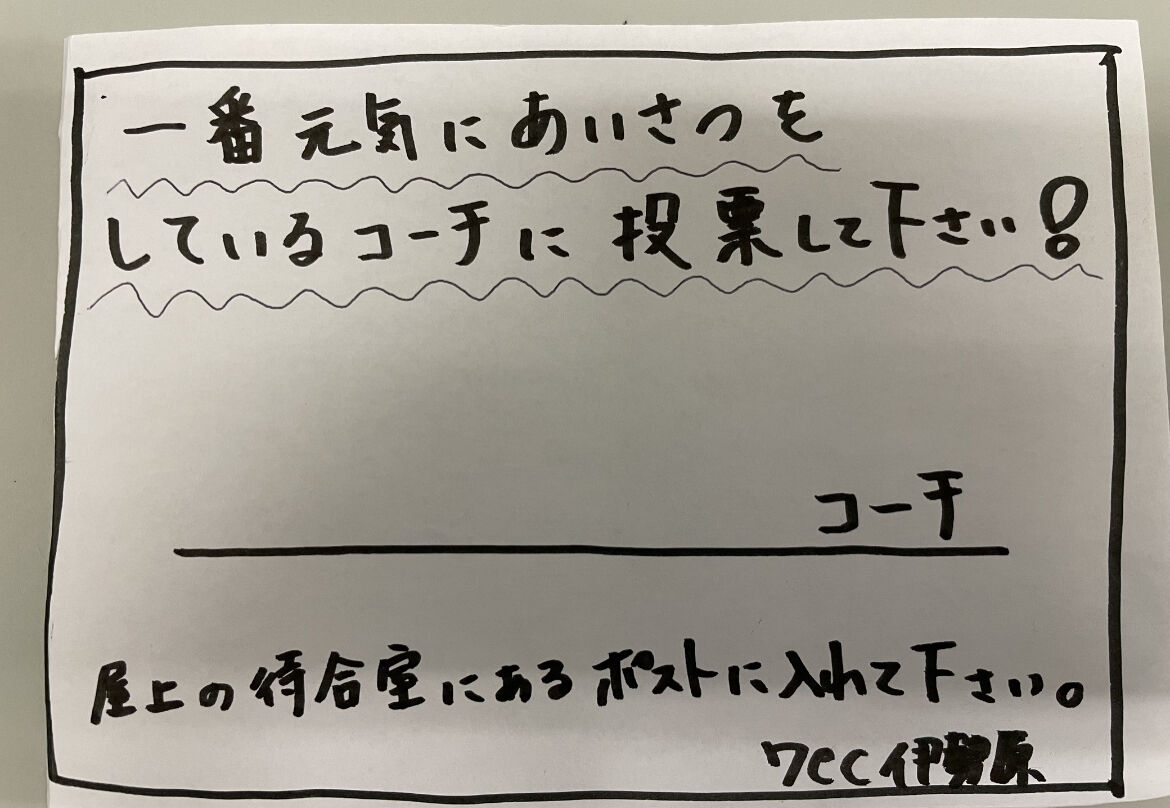 一番元気にあいさつを
しているコーチに投票して下さい!
コーチ
屋上の待合室にあるポストに入れて下さい。
7CC伊勢原